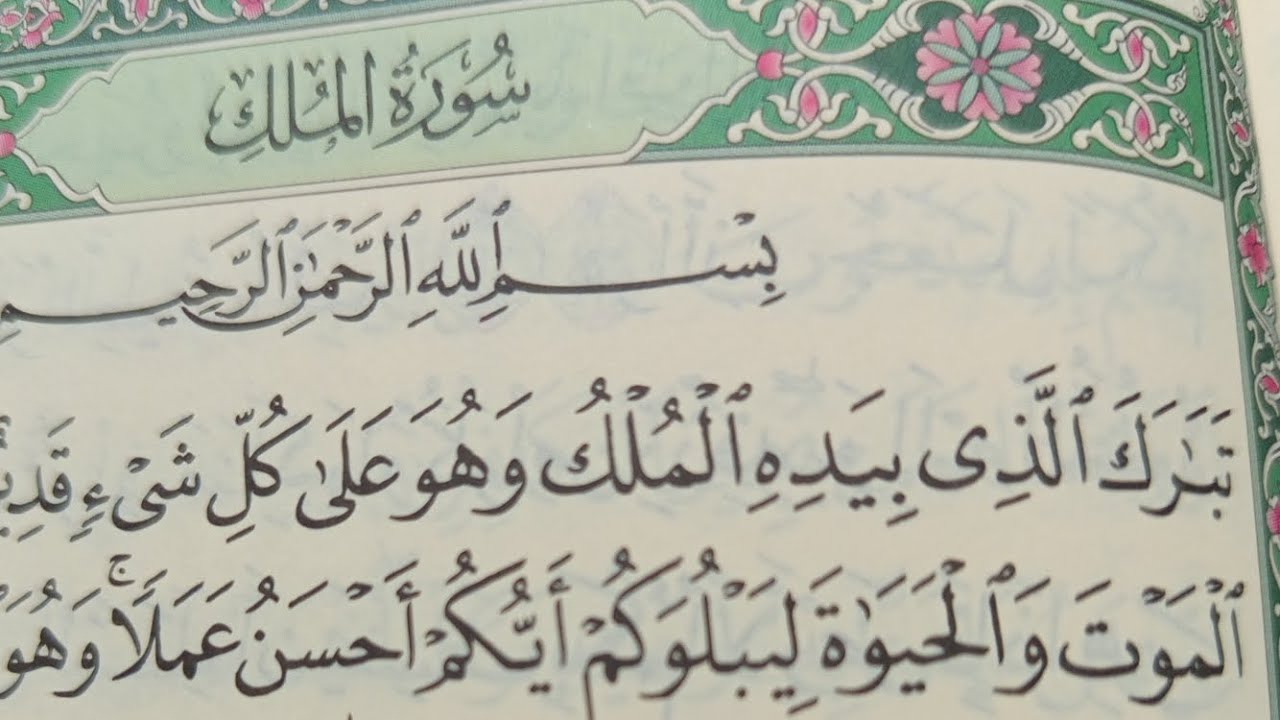 سُورَةُ المُلْكِ
بِسْمِ ٱللَّهِ ٱلرَّحْمَٰنِ ٱلرَّحِيمِ
تَبَٰرَكَ ٱلَّذِى بِيَدِهِ ٱلْمُلْكُ وَهُوَ عَلَىٰ كُلِّ شَىْءٍ
ٱلْمَوْتَ وَٱلْحَيَوٰةَ لِيَبْلُوَكُمْ أَيُّكُمْ أَحْسَنُ عَمَلًاۚ وَهُوَ